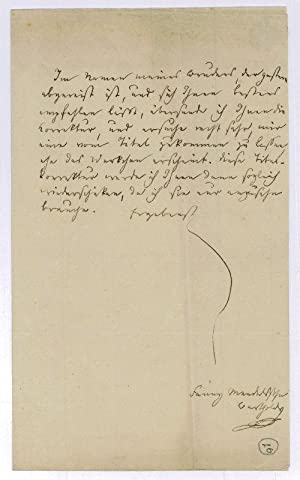 Im Namen meines Bruders, der gestern
abgereist ist, und sich Ihnen bestens
empfehlen läßt, übersende ich Ihnen die
Correktur, und ersuche recht sehr, mir
eine vom Titel zukommen zu lassen
ehe das Werkchen erscheint. Diese Titel-
correktur werde ich Ihnen dann sogleich
wiederschicken, da ich sie nur anzusehen
brauche. Ergebenst
Fanny Mendelssohn
Bartholdy